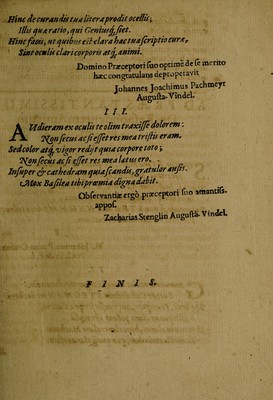 Hinc de curandis tua litera prodit ocellis;
Illis quæ ratio, qui Geniusq; siet.
Hinc faxis, ut quibus est clara hac tua scriptio curæ,
Sint oculis clari corporis atq; animi.
Domino Præceptori suo optimè de se merito
hæc congratulans deproperavit
Johannes Joachimus Pachmeyr
Augusta-Vindel.
III.
AUdieram ex oculis te olim traxisse dolorem:
Non secus ac si esset res mea tristis eram.
Sed color atq; vigor redyt quia corpore toto;
Non secus ac si esset res mea latus ero.
Insuper & cathedram quia scandis, gratulor ausis.
Mox Basilea tibi præmia digna dabit.
Observantiæ ergò præceptori suo amantiss.
appos.
Zacharias Stenglin Augustâ-Vindel.
FINIS.